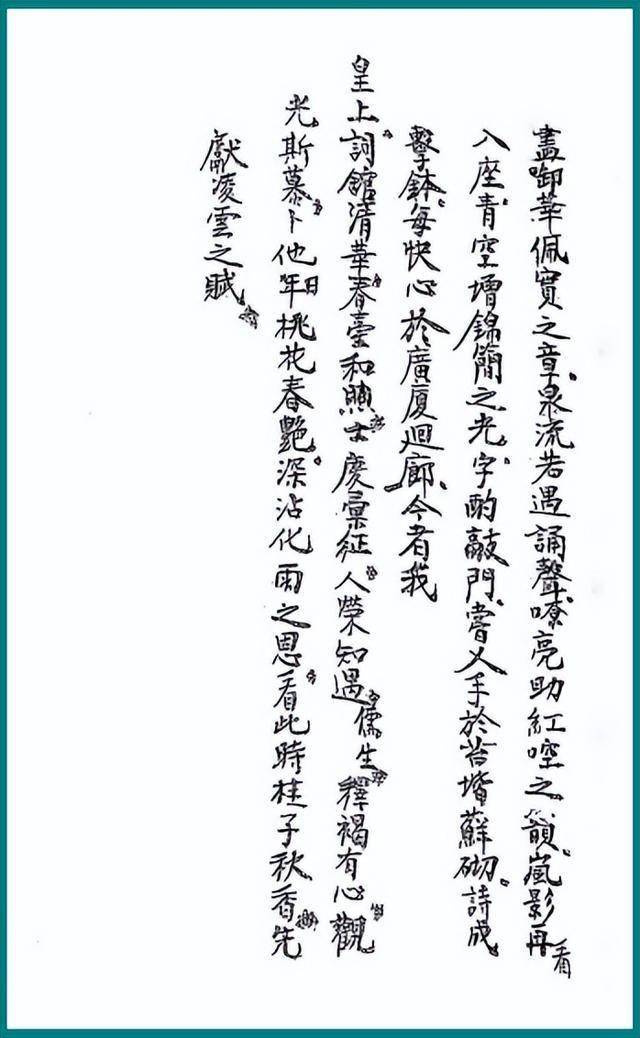 盡啣華佩實之章泉流若遇誦聲嘹亮助紅啌之籟嵐影再看
入座青空增錦簡之光字酌敲門嘗乂手於苔堦蘚砌詩成
擊鉢每快心於廣廈迴廊今者我
皇上詞館清華春臺和煦士慶彙征人榮知遇儒生釋褐有心觀
光斯慕卜他年日桃花春艷深沾化雨之恩看此時桂子秋香先
獻凌雲之賦